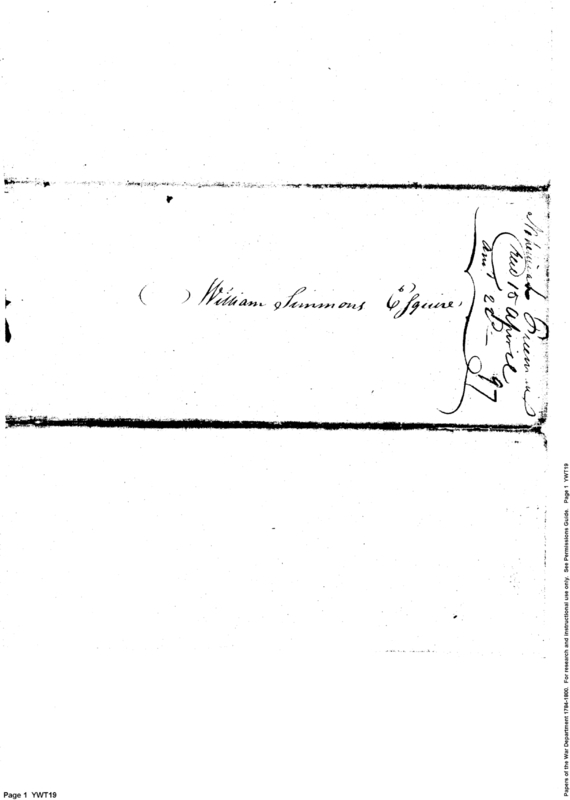 William Simmons Esquire,
Freeman
Recd 18 april
ansd 20th — 97
Page 1 YWT19
Papers of the War Department 1784-1800. For research and instructional use only. See Permissions Guide. Page 1 YWT19